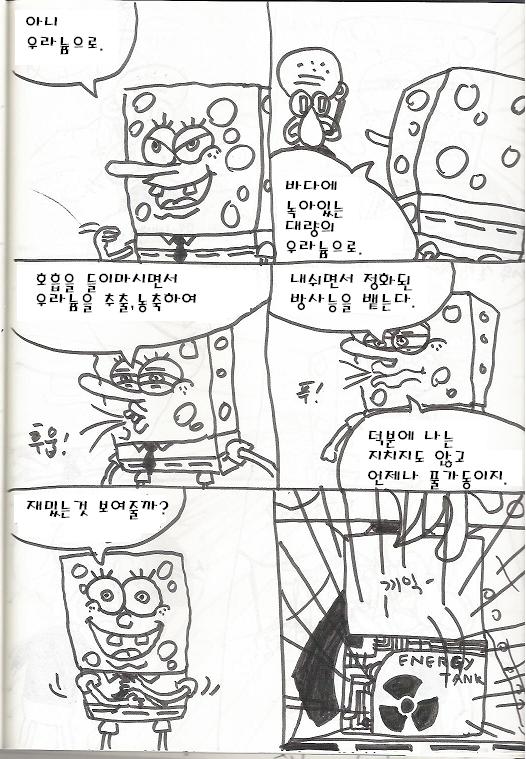 아니
우라늄으로.
바다에
녹아있는
대량의
우라늄으로.
호흡을 들이마시면서
우라늄을 추출,농축하여
후웁!
내쉬면서 정화된
방사능을 뱉는다.
푸!
덕분에 나는
지치지도 않고
언제나 풀가동이지.
재밌는것 보여줄까?
끼익-
ENERGY
TANK